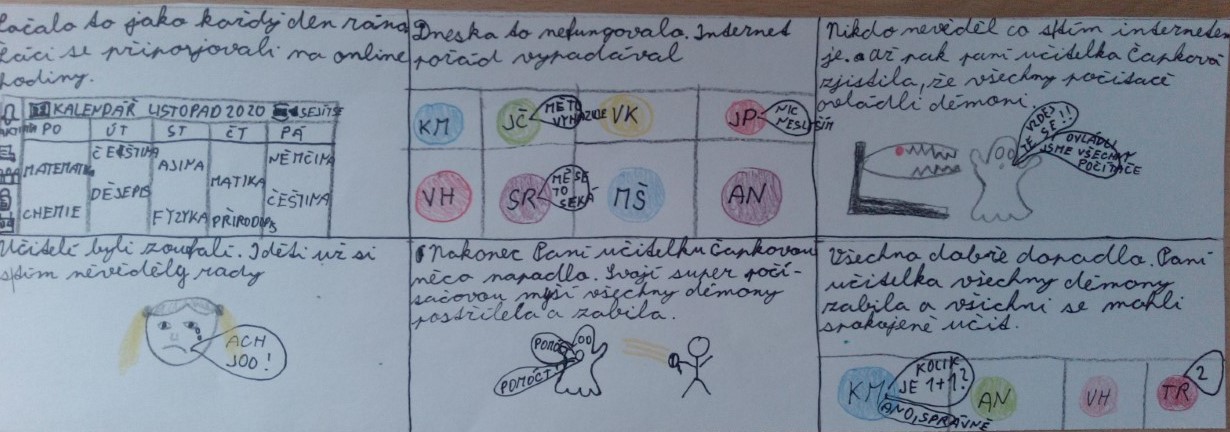 Začalo to jako každý den ráno
žáci se připojovali na online
hodiny.
KALENDÁŘ LISTOPAD 2020 SEJÍTSE
PO ÚT ST ČT PÁ
MATEMATIK ČEŠTINA AJINA MATIKA NĚMČINA
CHEMIE DĚJEPIS FYZYKA PŘÍRODOPIS ČEŠTINA
Dneska to nefungovalo. Internet
pořád vypadával
KM
JČ
MĚ TO
VYHAZUJE
VK
JP
NIC
NESLYŠÍM
VH
SR
MĚ SE
TO
SEKÁ
MŠ
AN
Nikdo nevěděl co stím internetem
je. až pak paní učitelka Čapková
zjistila, že všechny počítače
ovládli démoni.
VZDEJ
TE SE!!
OVLÁDLI
JSME VŠECHNY
POČÍTAČE
Učitelé byli zoufalí. I děti už si
stím nevěděly rady
ACH
JOO!
Nakonec Paní učitelku Čapkovou
něco napadlo. Svojí super počí-
tačovou myší všechny démony
postřílela a zabila.
POMOC
POMOC!
Všechno dobře dopadlo. Paní
učitelka všechny démony
zabila a všichni se mohli
spokojeně učit.
KM
KOLIK
JE 1+1?
ANO, SPRÁVNĚ
AN
VH
TR
2